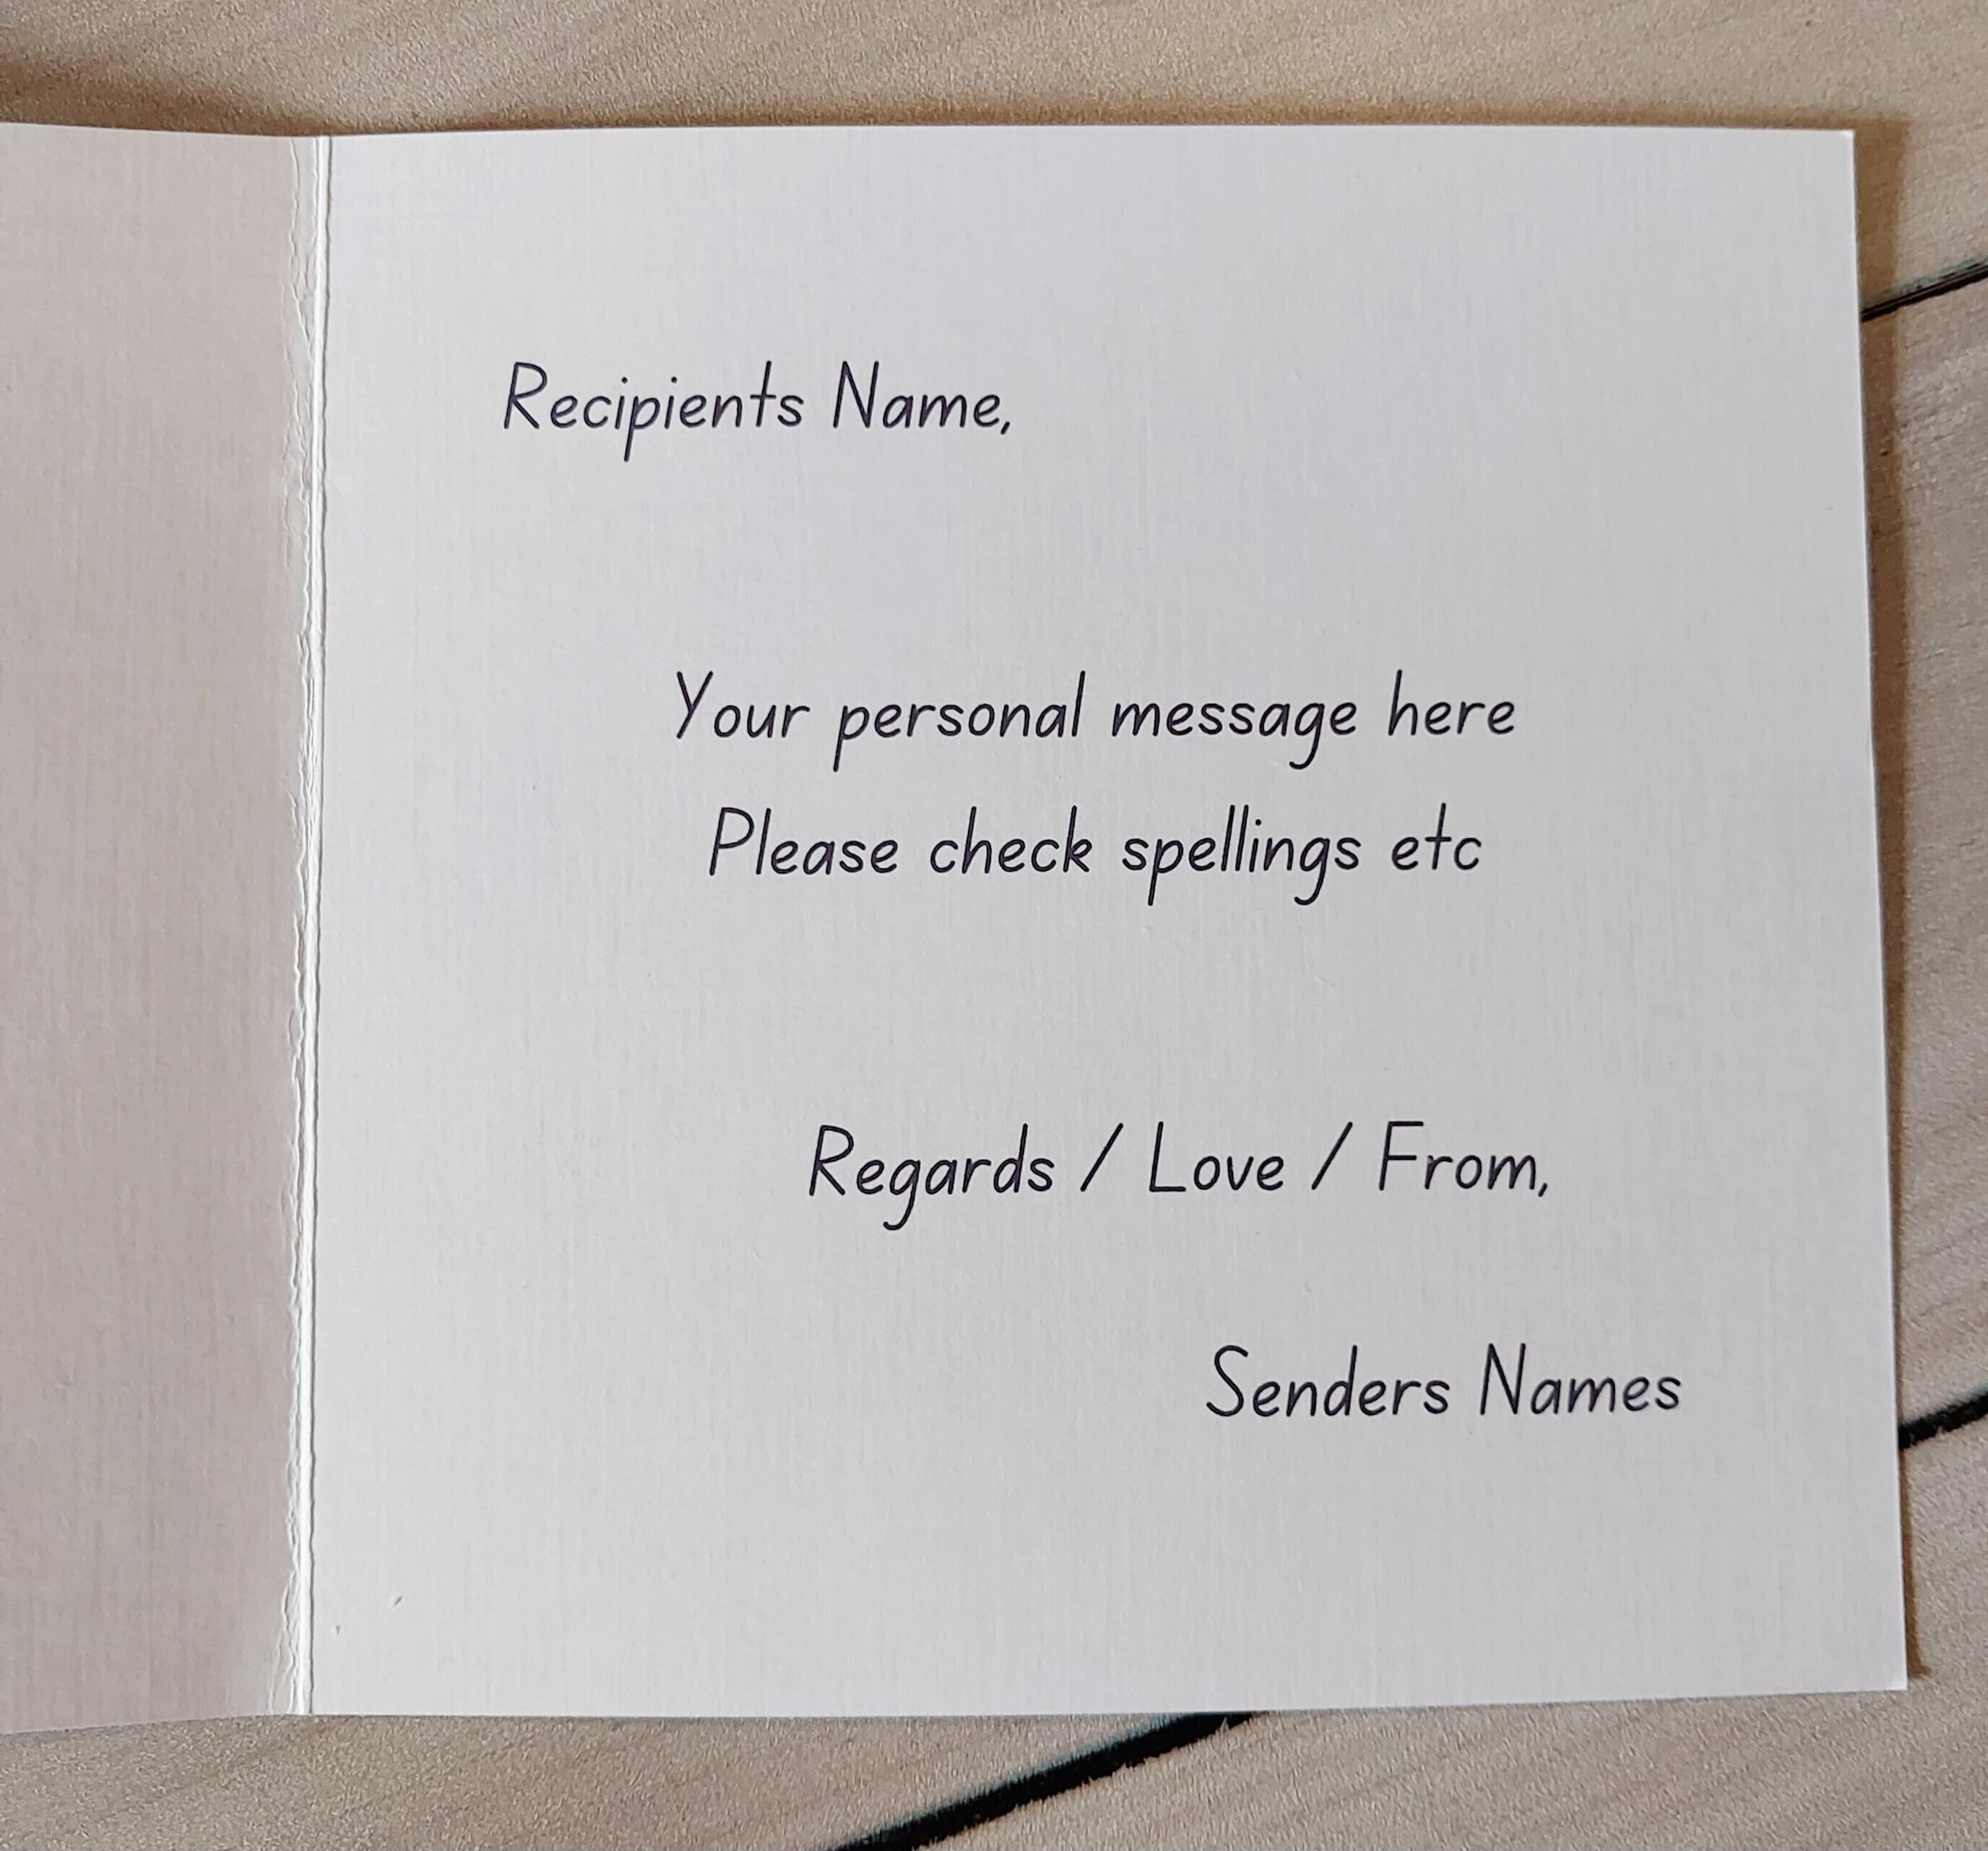 Recipients Name,
Your personal message here
Please check spellings etc
Regards / Love / From,
Senders Names